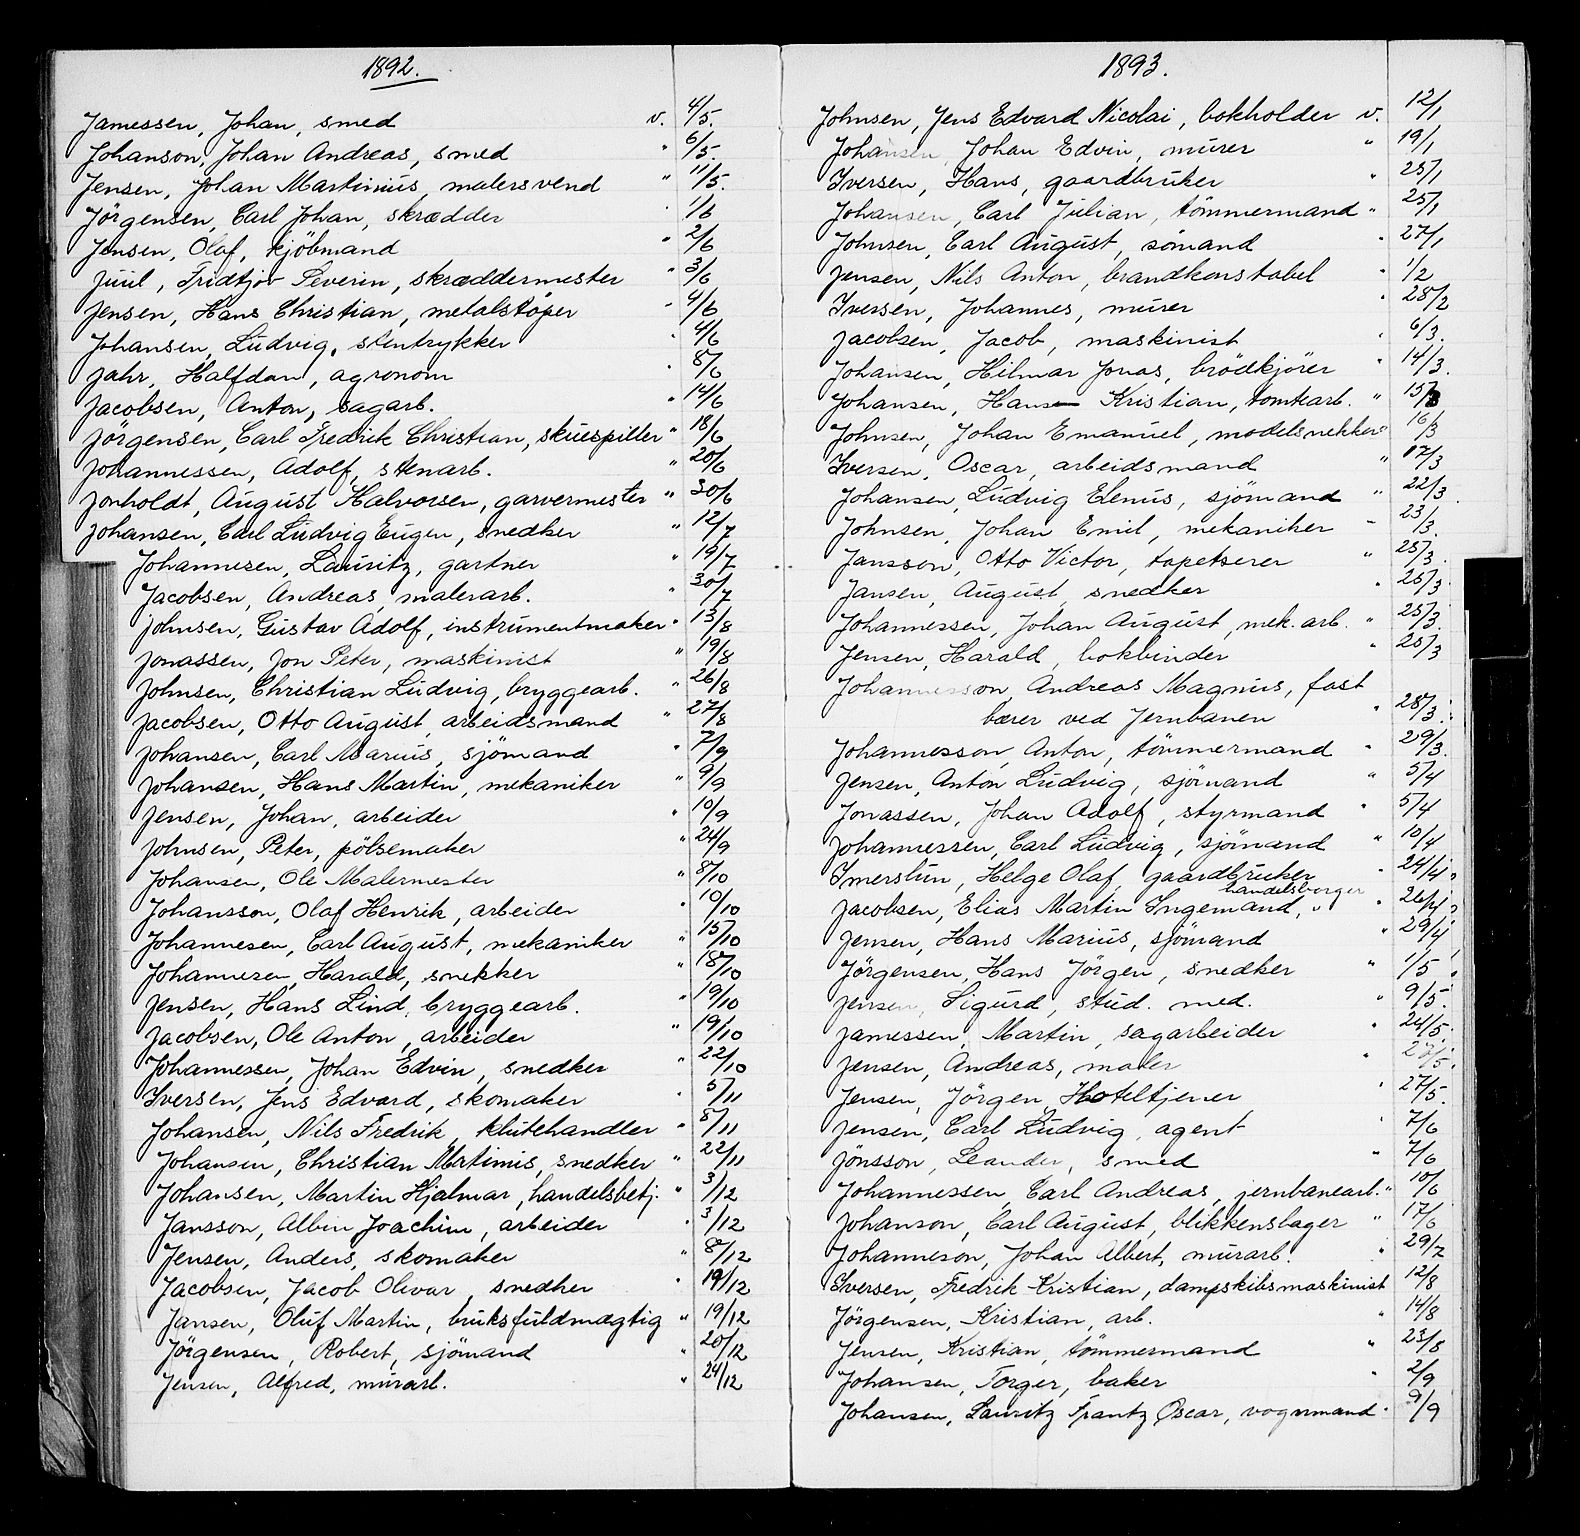 1892.
Jamessen, Johan, smed v. 4/5.
Johanson, Johan Andreas, smed " 6/5.
Jensen, Johan Martinius, malersvend " 11/5.
Jörgensen, Carl Johan, skrædder " 1/6
Jensen, Olaf, kjöbmand " 2/6
Juul, Fridtjov Severin, skræddermester " 3/6
Jensen, Hans Christian, metalstöper " 4/6
Johansen, Ludvig, stentrykker " 4/6
Jahr, Halfdan, agronom " 8/6
Jacobsen, Anton, sagarb. " 14/6
Jörgensen, Carl Fredrik Christian, skuespiller " 18/6
Johannessen, Adolf, stenarb. " 20/6
Jonholdt, August Halvorsen, garvermester " 30/6
Johansen, Carl Ludvig Eugen, snedker " 12/7
Johannesen, Lauritz, gartner " 15/7
Jacobsen, Andreas, malerarb. " 30/7
Johnsen, Gustav Adolf, instrumentmaker " 13/8
Jonassen, Jon Peter, maskinist " 19/8
Johnsen, Christian Ludvig, bryggearb. " 26/8
Jacobsen, Otto August, arbeidsmand " 27/8
Johansen, Carl Marius, sjömand " 7/9
Johansen, Hans Martin, mekaniker " 9/9
Jensen, Johan, arbeider " 10/9
Johnsen, Peter, pölsemaker " 24/9
Johansen, Ole Malermester " 8/10
Johansson, Olaf Henrik, arbeider " 10/10
Johannesen, Carl August, mekaniker " 15/10
Johannesen, Harald, snekker " 18/10
Jensen, Hans Lind, bryggearb. " 19/10
Jacobsen, Ole Anton, arbeider " 19/10
Johannessen, Johan Edvin, snedker " 22/10
Iversen, Jens Edvard, skomaker " 5/11
Johansen, Nils Fredrik, klutehandler " 8/11
Johansen, Christian Martinus, snedker " 22/11
Johansen, Martin Hjalmar, handelsbetj. " 3/12
Jansson, Albin Joachim, arbeider " 3/12
Jensen, Anders, skomaker " 8/12
Jacobsen, Jacob Olivar, snedker " 19/12
Jansen, Oluf Martin, bruksfuldmægtig " 19/12
Jörgensen, Robert, sjömand " 20/12
Jensen, Alfred, murarb. " 24/12
1893.
Johnsen, Jens Edvard Nicolai, bokholder v. 12/1
Johansen, Johan Edvin, murer " 19/1
Iversen, Hans, gaardbruker " 25/1
Johansen, Carl Julian, tömmermand " 25/1
Johnsen, Carl August, sömand " 27/1
Jensen, Nils Anton, brandkonstabel " 1/2
Iversen, Johannes, murer " 28/2
Jacobsen, Jacob, maskinist " 6/3.
Johansen, Hilmar Jonas, brödkjörer " 14/3.
Johansen, Hans Kristian, tomtearb. " 15/3
Johnsen, Johan Emanuel, modelsnekker " 16/3
Iversen, Oscar, arbeidsmand " 17/3
Johansen, Ludvig Elenus, sjömand " 22/3.
Johnsen, Johan Emil, mekaniker " 23/3.
Jansson, Otto Victor, tapetserer " 25/3.
Jansen, August, snedker " 25/3
Johannessen, Johan August, mek. arb. " 25/3.
Jensen, Harald, bokbinder " 25/3
Johannesson, Andreas Magnus, fast
bærer ved Jernbanen " 28/3.
Johannesson, Anton, tömmermand " 29/3.
Jensen, Anton Ludvig, sjömand " 5/4
Jonassen, Johan Adolf, styrmand " 5/4
Johannessen, Carl Ludvig, sjömand " 10/4
Imerslun, Helge Olaf, gaardbruker " 24/4
Jacobsen, Elias Martin Ingemand, handelsborger " 26/4
Jensen, Hans Marius, sjömand " 29/4
Jörgensen, Hans Jörgen, snedker " 1/5
Jensen, Sigurd, stud. med. " 9/5.
Jamessen, Martin, sagarbeider " 24/5.
Jensen, Andreas, maler "
Jensen, Jörgen Hoteltjener " 27/5.
Jensen, Carl Ludvig, agent " 7/6
Jönsson, Leander, smed " 7/6
Johannessen, Carl Andreas, jernbanearb. " 10/6
Johanson, Carl August, blikkenslager " 17/6
Johanneson, Johan Albert, murarb. " 29/7
Iversen, Fredrik Kristian, dampskibsmaskinist 12/8
Jörgensen, Kristian, arb. " 14/8
Jensen, Kristian, tömmermand " 23/8
Johansen, Torger, baker " 2/9
Johansen, Lauritz Frantz Oscar, vognmand " 9/9